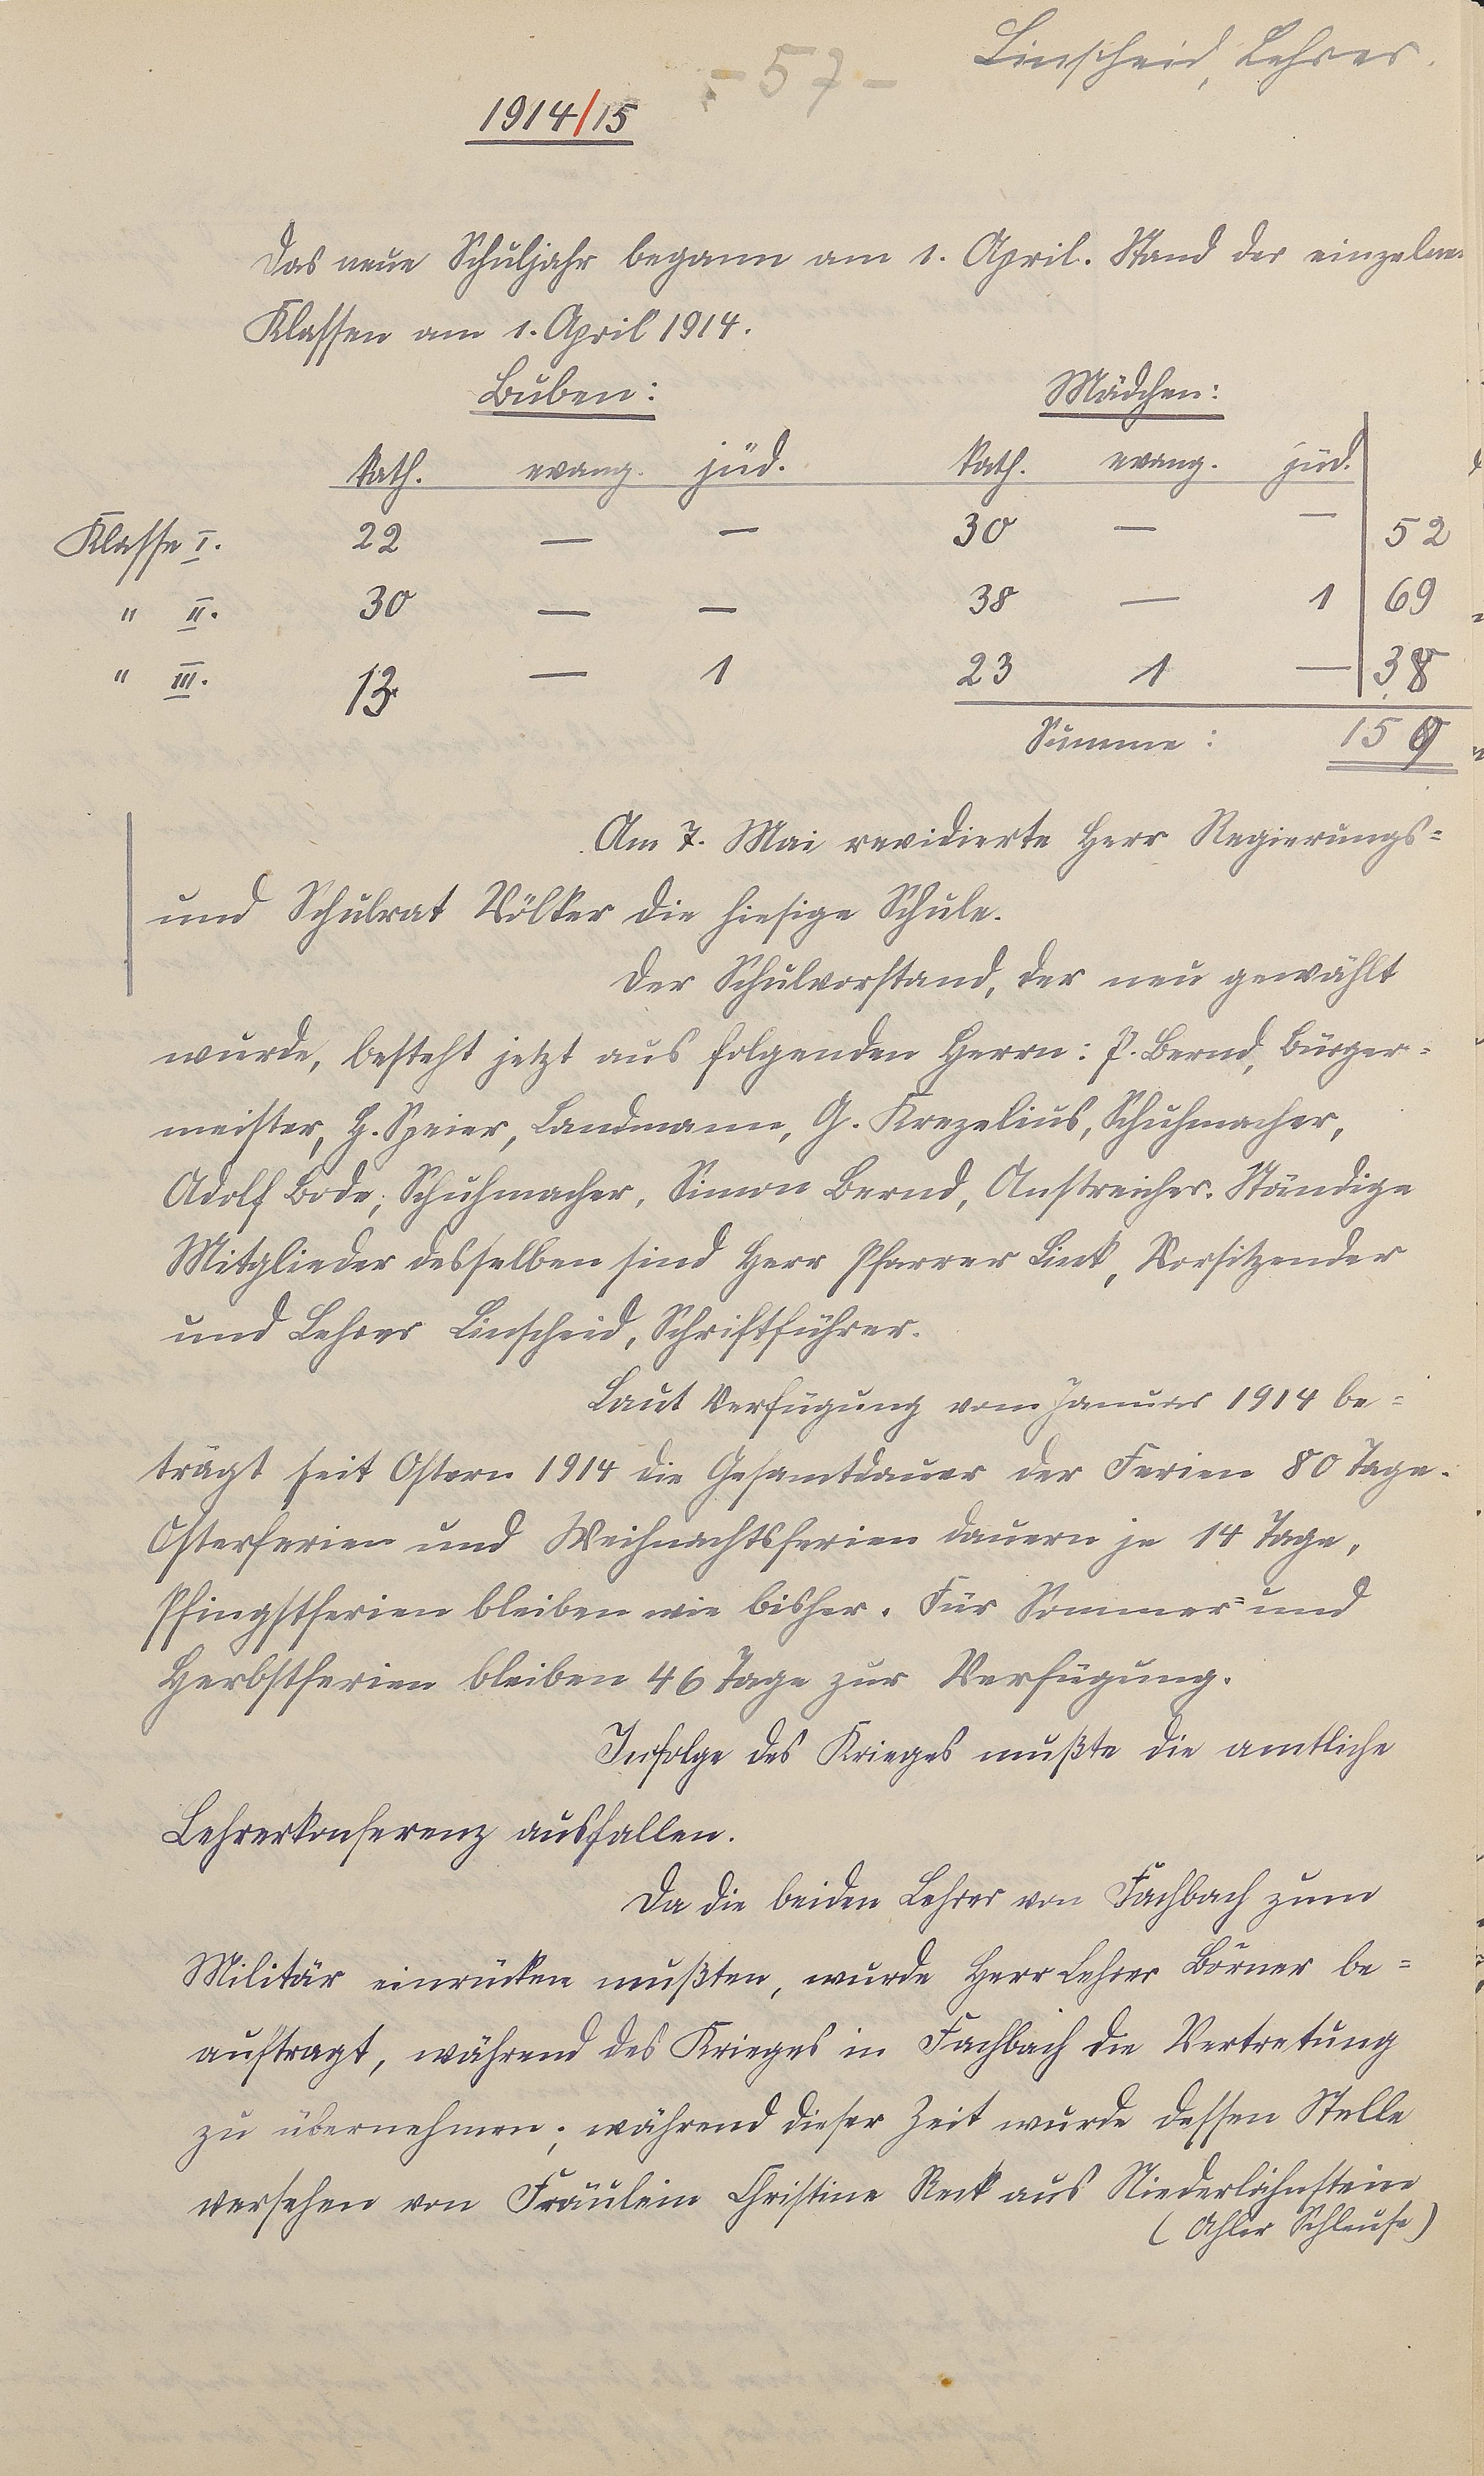 Linscheid, Lehrer.
- 57 -
1914/15
Das neue Schuljahr begann am 1. April. Stand der einzelnen
Klassen am 1. April 1914.
Buben: Mädchen:
kath. evang. jüd. kath. evang. jüd.
Klasse I. 22 — — 30 — — 52
" II. 30 — — 38 — 1 69
" III. 13 — 1 23 1 — 38
Summe: 159
Am 7. Mai revidierte Herr Regierungs=
und Schulrat Völker die hiesige Schule.
Der Schulvorstand, der neu gewählt
wurde, besteht jetzt aus folgenden Herrn: P. Bernd, Bürger=
meister, H. Speier, Landmann, G. Krezelius, Schuhmacher,
Adolf Bode, Schuhmacher, Simon Bernd, Anstreicher. Ständige
Mitglieder desselben sind Herr Pfarrer Link, Vorsitzender
und Lehrer Linscheid, Schriftführer.
Laut Verfügung vom Januar 1914 be=
trägt seit Ostern 1914 die Gesamtdauer der Ferien 80 Tage.
Osterferien und Weihnachtsferien dauern je 14 Tage,
Pfingstferien bleiben wie bisher. Für Sommer= und
Herbstferien bleiben 46 Tage zur Verfügung.
Infolge des Krieges mußte die amtliche
Lehrerkonferenz ausfallen.
Da die beiden Lehrer von Fachbach zum
Militär einrücken mußten, wurde Herr Lehrer Börner be=
auftragt, während des Krieges in Fachbach die Vertretung
zu übernehmen; während dieser Zeit wurde dessen Stelle
versehen von Fräulein Christine Reck aus Niederlahnstein
(Ahler Schleuse)